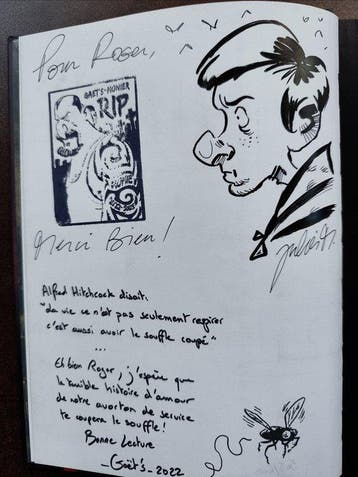 Pour Roger,
GAET'S-MONIER
RIP
Merci Bien!
Alfred Hitchcock disait:
"La vie ce n'est pas seulement respirer
c'est aussi avoir le souffle coupé"
...
Eh bien Roger, j'espère que
la terrible histoire d'amour
de notre avorton de service
te coupera le souffle!
Bonne Lecture
Gaët's - 2022